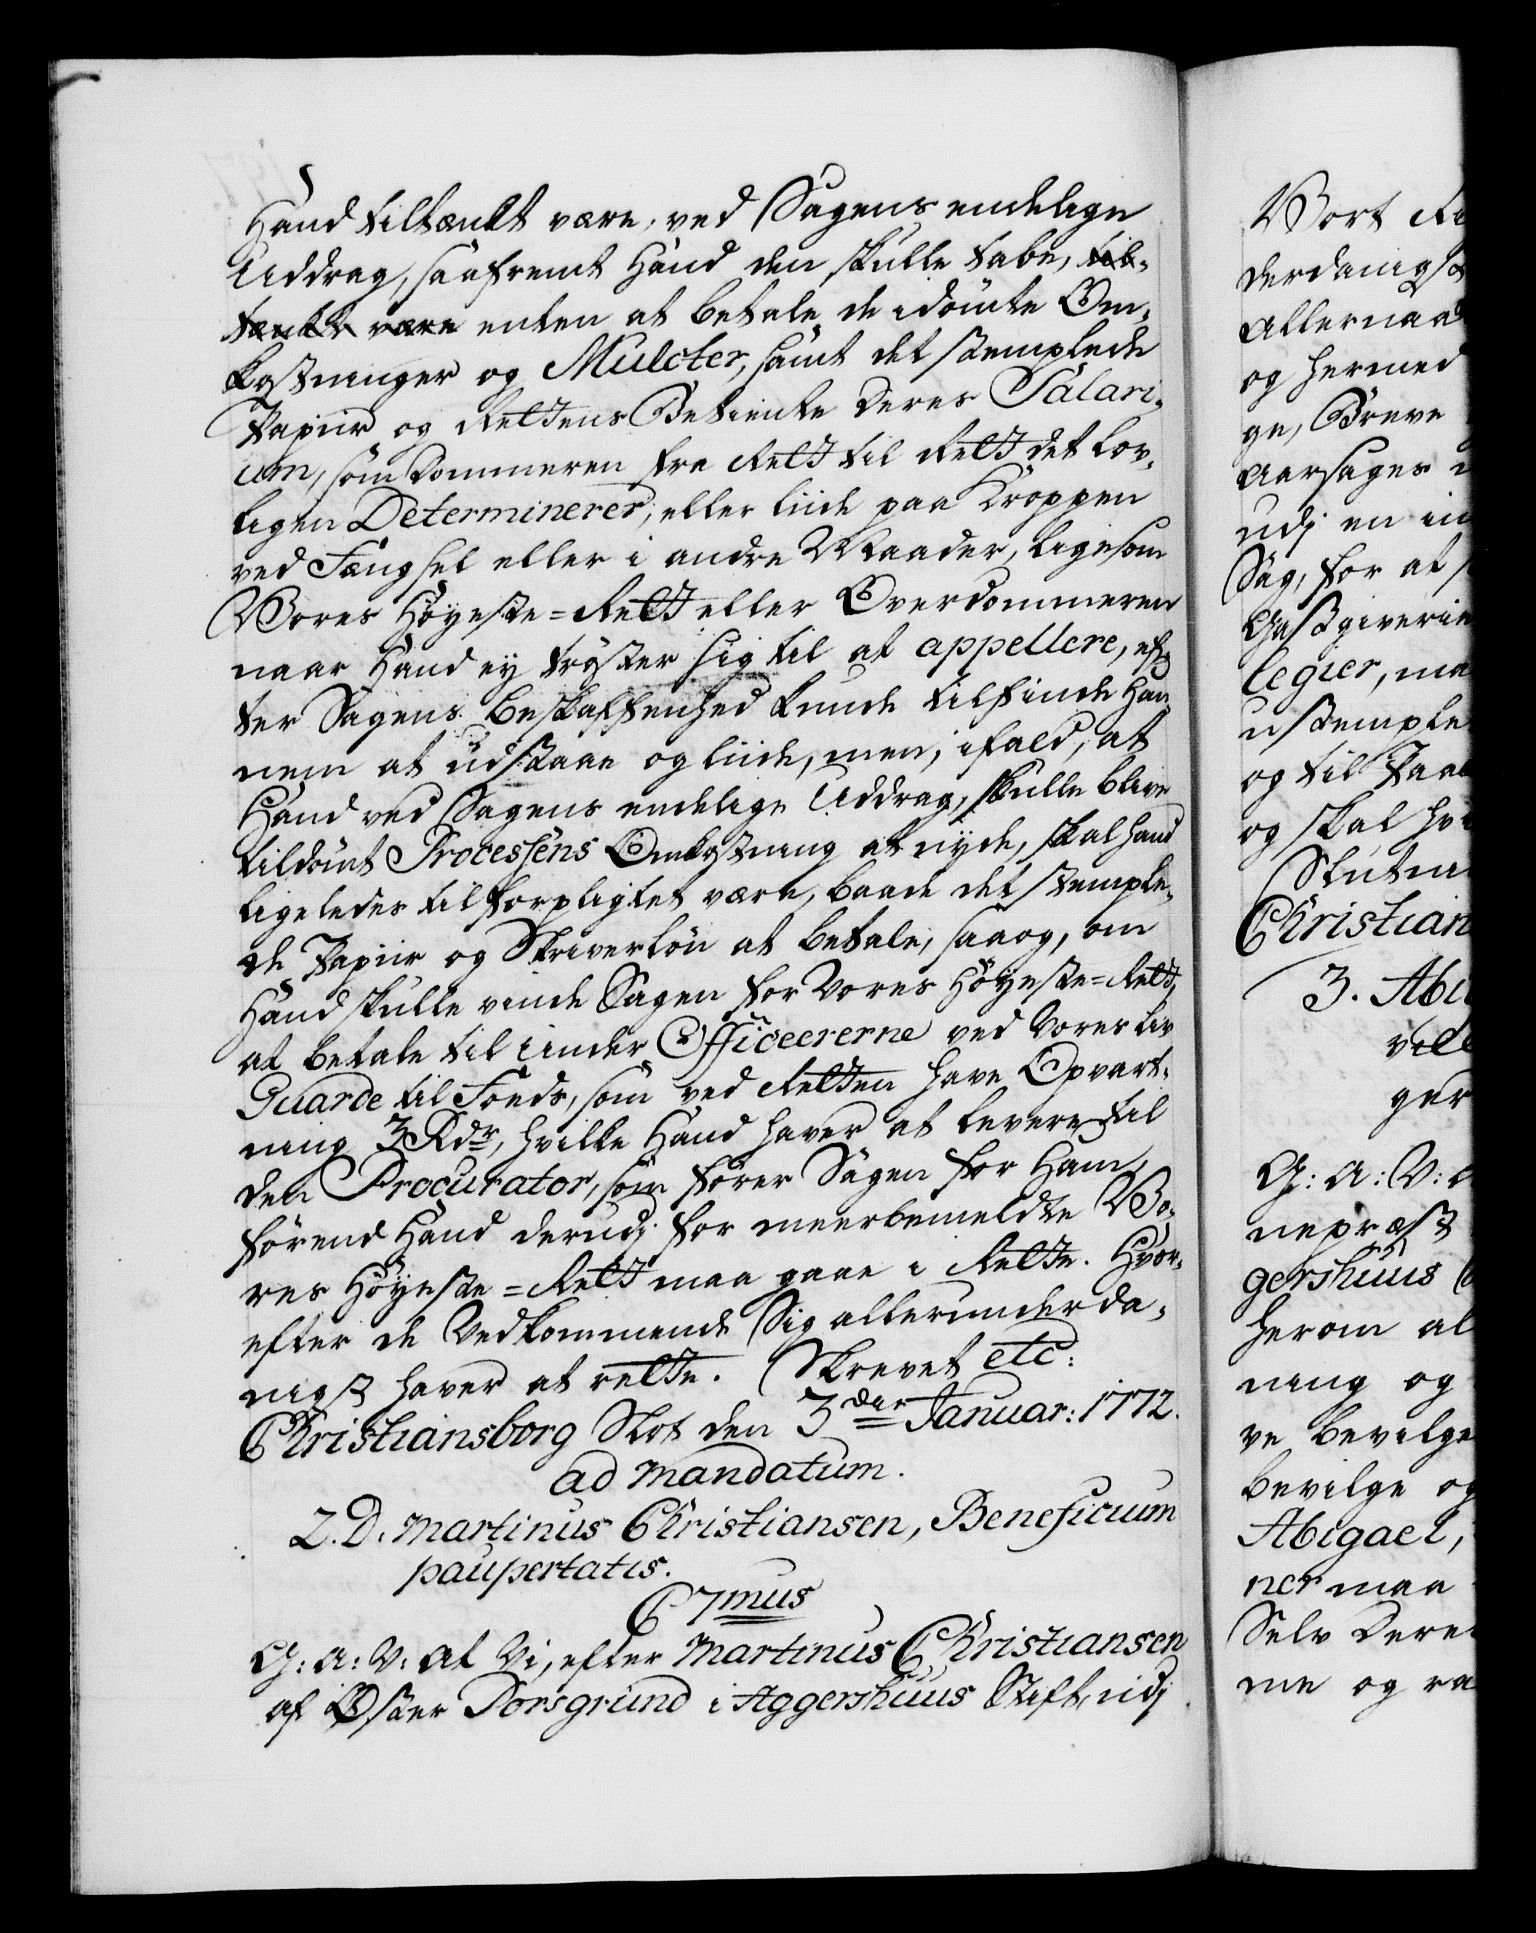 Hand tiltænkt være, ved Sagens endelige
Uddrag, saafremt Hand den skulle tabe, til-
tænkt være enten at betale de idømte Om-
kostninger og Mulcter, samt det stemplede
Papiir og Rettens Betiente deres Salari-
um, som Dommeren fra Rett til Rett det Lov-
ligen Determinerer, eller liide paa Kroppen
ved Fængsel eller i andre Maader, ligesom
Vores Høyeste-Rett eller Overdommeren
naar Hand ey trøster sig til at appellere, ef-
ter Sagens Beskaffenhed kunde tilfinde Han-
nem at udstaae og liide, men, ifald, at
Hand ved Sagens endelige Uddrag, skulle blive
tildømt Processens Omkostning at nyde, skal hand
ligeledes tilforpligtet være, baade det stemple-
de Papiir og Skriverløn at betale, saaog, om
Hand skulle vinde Sagen for Vores Høyeste-Rett,
at betale til Under Officeererne ved Vores Liv
Guarde til Fods, som ved Retten have Opvart-
ning 3 Rdr, hvilke Hand haver at levere til
den Procurator, som fører Sagen for Ham,
førend Hand derudj for meerbemeldte Vo-
res Høyeste-Rett maa gaae i Rette. Hvor-
efter de Vedkommende Sig allerunderda-
nigst haver at rette. Skrevet etc:
Christiansborg Slot den 3die Januar: 1772.
ad mandatum.
2. D. Martinus Christiansen, Beneficium
paupertatis.
C 7mus
G: A: V: At Vi, efter Martinus Christiansen
af Øster Porsgrund i Aggershuus Stift, udj
Vort
derdanigst
Allernaad
og hermed
ge, Breve
aarsages
udj en in
Sag, for at
Gæstgiverie
legier, ma
ustemple
og til Paa
og skal
Slutni
Christian
3. Abi
ger
G: A: V:
nepræst
gershuus
herom al
ning og
ve bevilge
bevilge og
Abigael,
ner maa
Selv Dere
me og ra